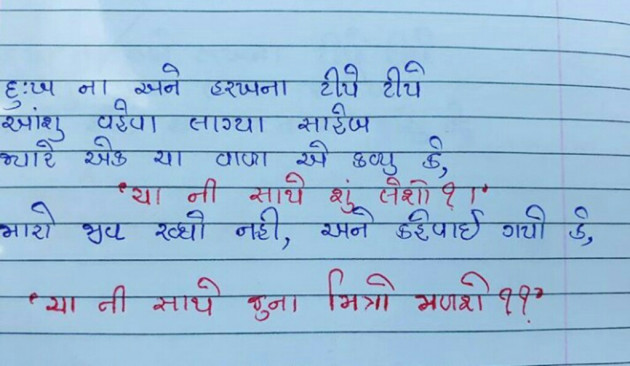 દુ:ખ ના અને હરખના ટીપે ટીપે
આંશુ વહેવા લાગ્યા સાહેબ
જ્યારે એક ચા વાળા એ કહ્યુ કે,
"ચા ની સાથે શું લેશો?"
મારો જીવ રહ્યો નહી, અને કહેવાઈ ગયો કે,
"ચા ની સાથે જુના મિત્રો મળશે??"